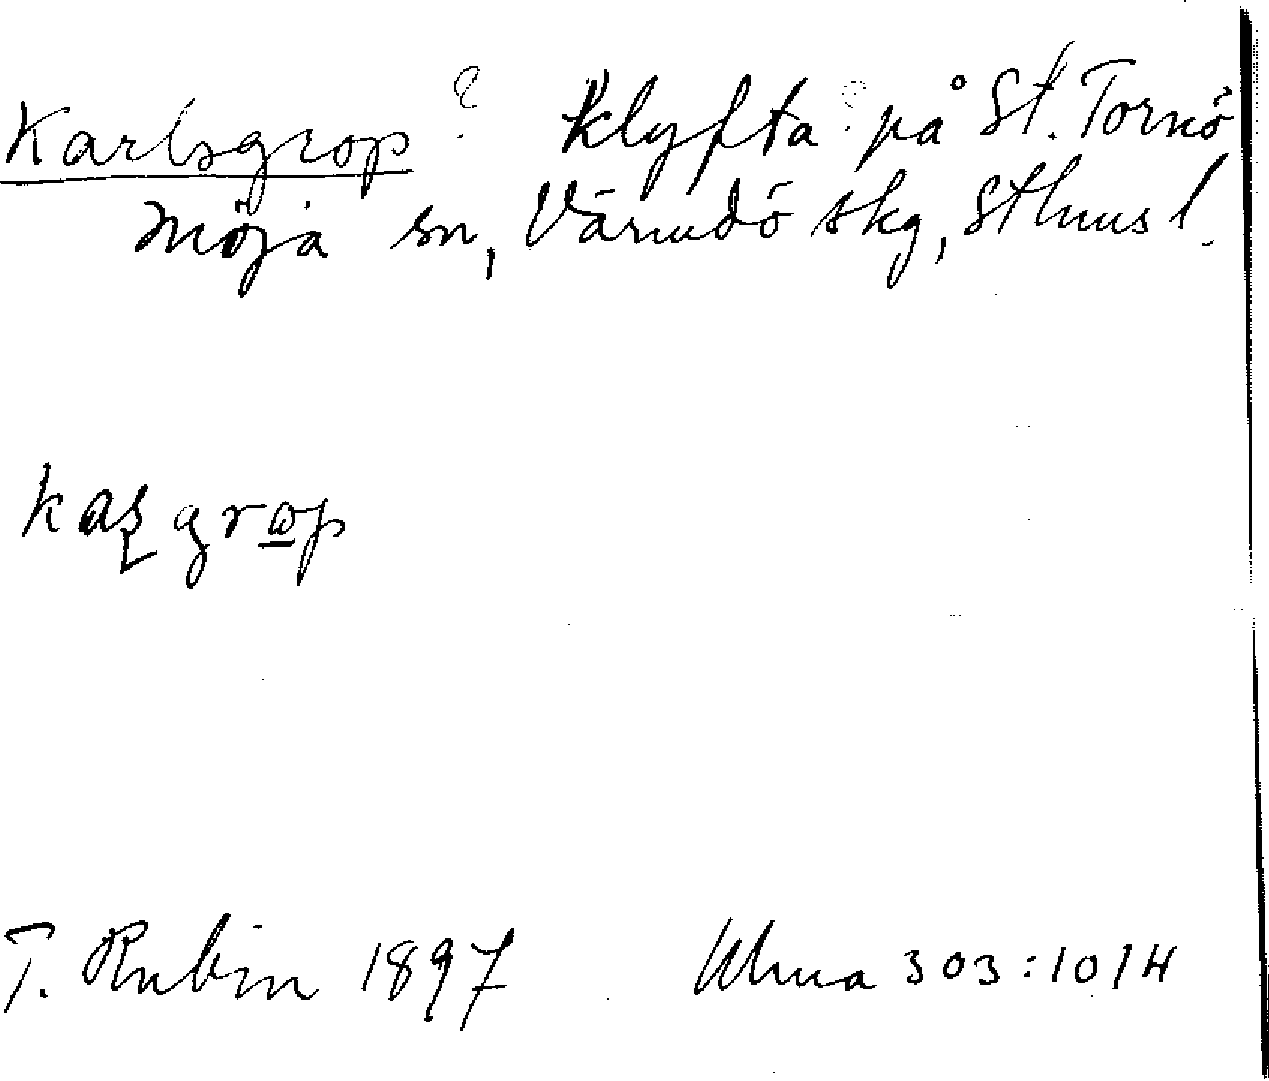 Karlsgrop ? Klyfta på St. Tornö
Möja sn, Värmdö skg, Sthms l.
kaş grop
T. Rubin 1897 Ulma 303:10 14